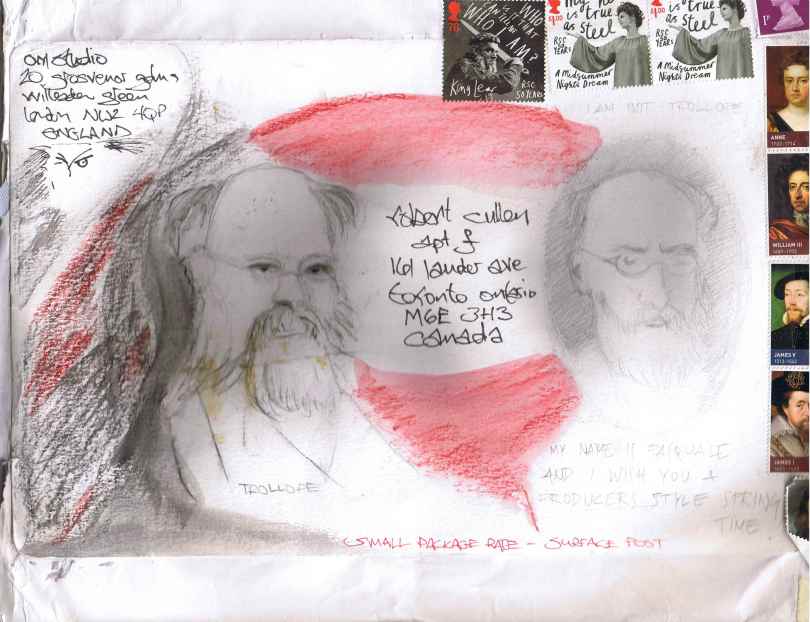 OM Studio
20 grosvenor gdns
willesden green
london NW2 4QP
ENGLAND
76
WHO IS IT THAT CAN TELL ME
WHO I AM?
King Lear
RSC 50 YEARS
£1.00
is true
as
steel
RSC 50
YEARS
A Midsummer
Night's Dream
£1.00
is true
as
steel
RSC
YEARS
A Midsummer
Night's Dream
1P
I AM NOT TROLLOPE
robert cullen
apt f
161 lauder ave
toronto ontario
M6E 3H3
Canada
ANNE
1702-1714
WILLIAM III
1689-1702
JAMES V
1513-1542
JAMES I
TROLLOPE
MY NAME IS PASQUALE
AND I WISH YOU A
PRODUCERS STYLE SPRING
TIME.
SMALL PACKAGE RATE - SURFACE POST